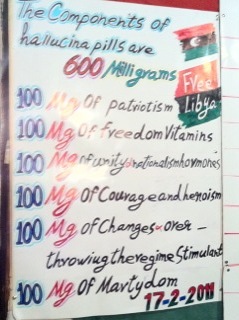 The Components of
hallucina pills are
600 Milligrams
Free
Libya
100 Mg Of patriotism
100 Mg Of freedom Vitamins
100 Mg of unity & nationalism hormones
100 Mg Of Courage and heroism
100 Mg Of Changes over-
throwing the regime Stimulant
100 Mg Of Martydom
17-2-2011